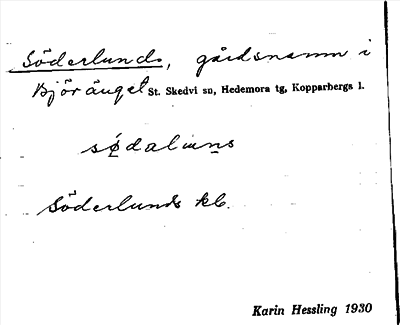 Söderlunds, gårdsnamn i
Björänget St. Skedvi sn, Hedemora tg, Kopparbergs l.
Söderlunds kb.
Karin Hessling 1930